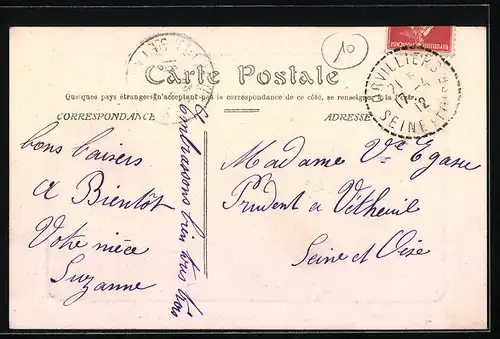 10
REPUBLIQUE FRANÇAISE
Carte Postale
Quelques pays étrangers n'acceptant pas la correspondance de ce côté, se renseigner à la Poste
CORRESPONDANCE
ADRESSE
ARVILLIERS
21
12
SEINE ET OISE
bons baisers
a Bientôt
Votre nièce
Suzanne
Embrassons bien
Madame Vve Egasse
Prudent a Vétheuil
Seine et Oise